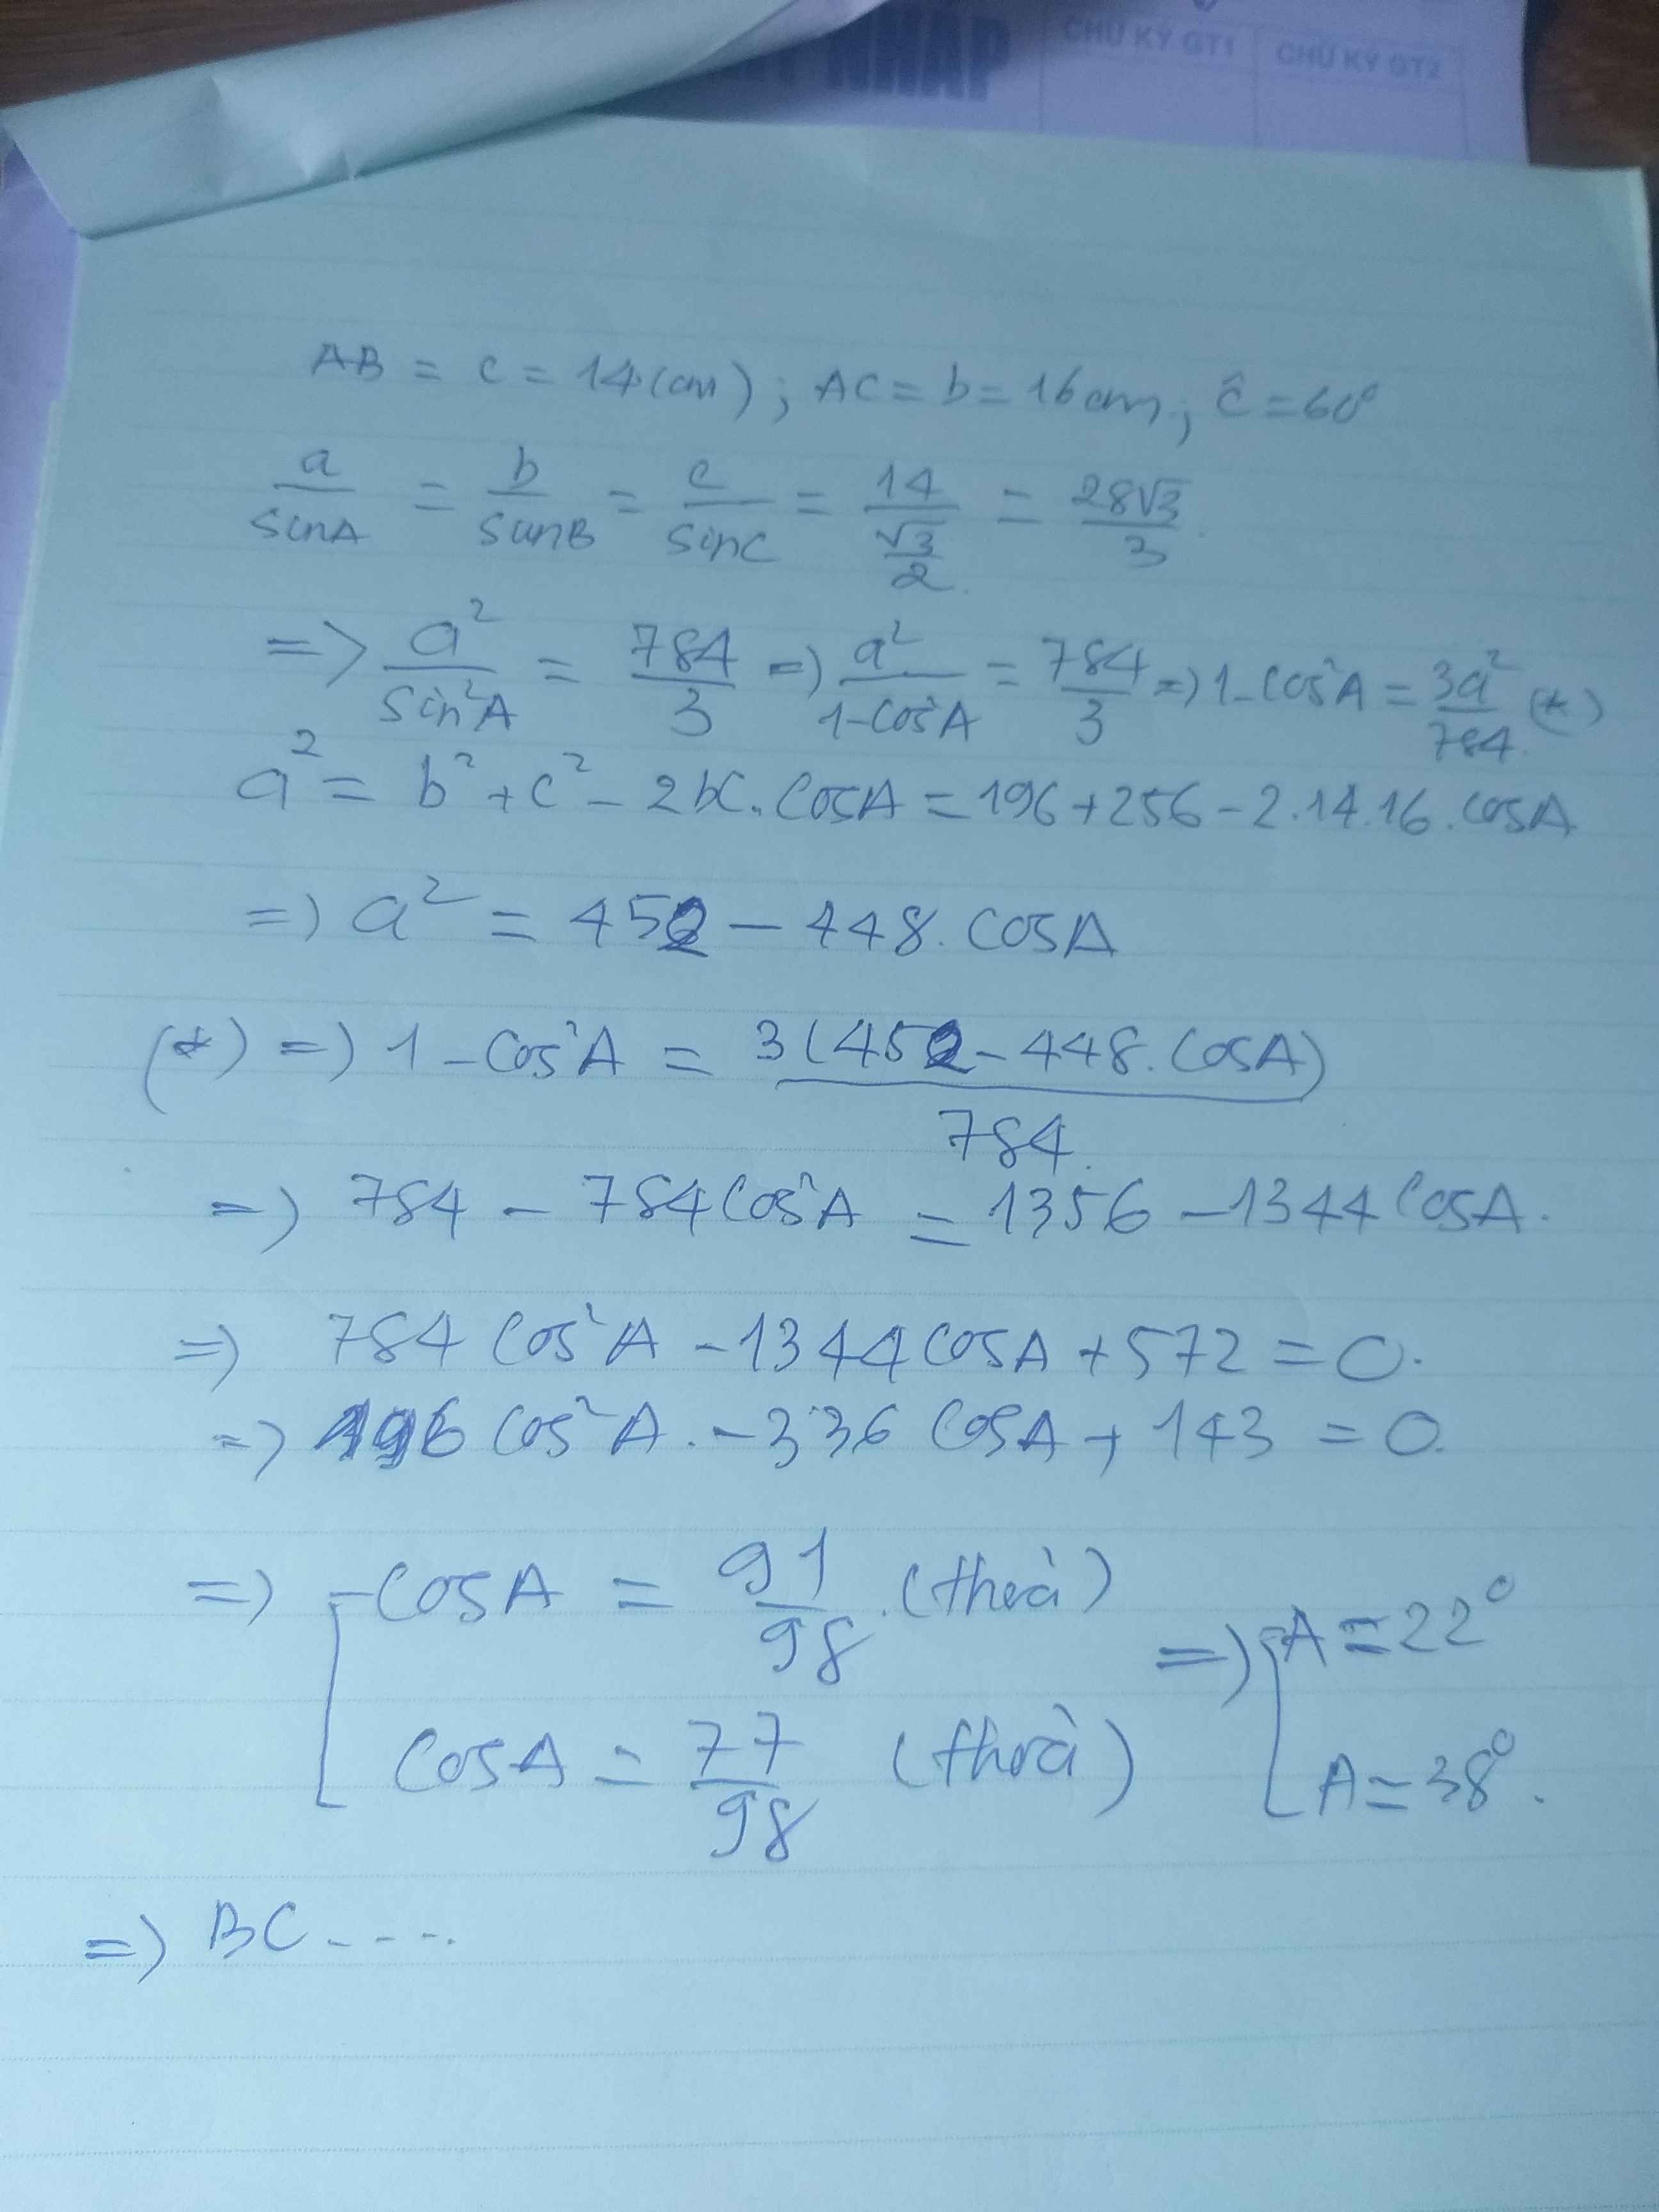 NHÁP CHỮ KÝ GT1 CHỮ KÝ GT2
AB = c = 14(cm); AC = b = 16cm; Ĉ = 60°
a/sinA = b/sinB = c/sinC = 14/(√3/2) = 28√3/3.
=> a²/sin²A = 784/3 => a²/(1-cos²A) = 784/3 => 1-cos²A = 3a²/784. (*)
a² = b² + c² - 2bc.cosA = 196 + 256 - 2.14.16.cosA
=> a² = 452 - 448.cosA
(*) => 1 - cos²A = 3(452 - 448.cosA)/784.
=> 784 - 784cos²A = 1356 - 1344cosA.
=> 784cos²A - 1344cosA + 572 = 0.
=> 196cos²A - 336cosA + 143 = 0.
=> [cosA = 91/98. (thoả) => [A = 22°
cosA = 77/98 (thoả) A = 38°.
=> BC.....